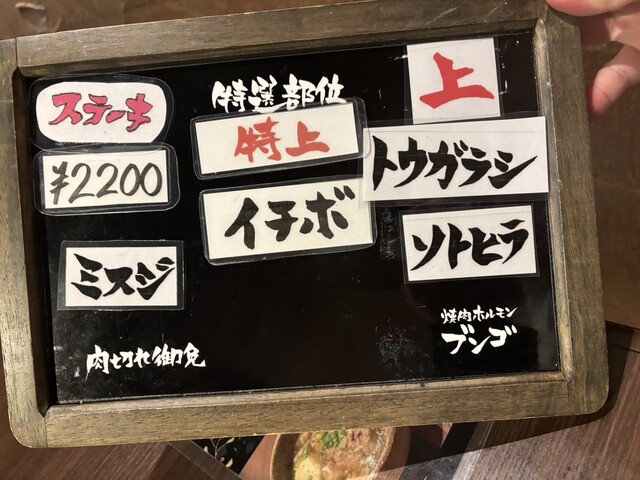 特選部位
上
トウガラシ
ソトヒラ
特上
イチボ
ステーキ
¥2200
ミスジ
肉切れ御免
焼肉ホルモン
ブンゴ